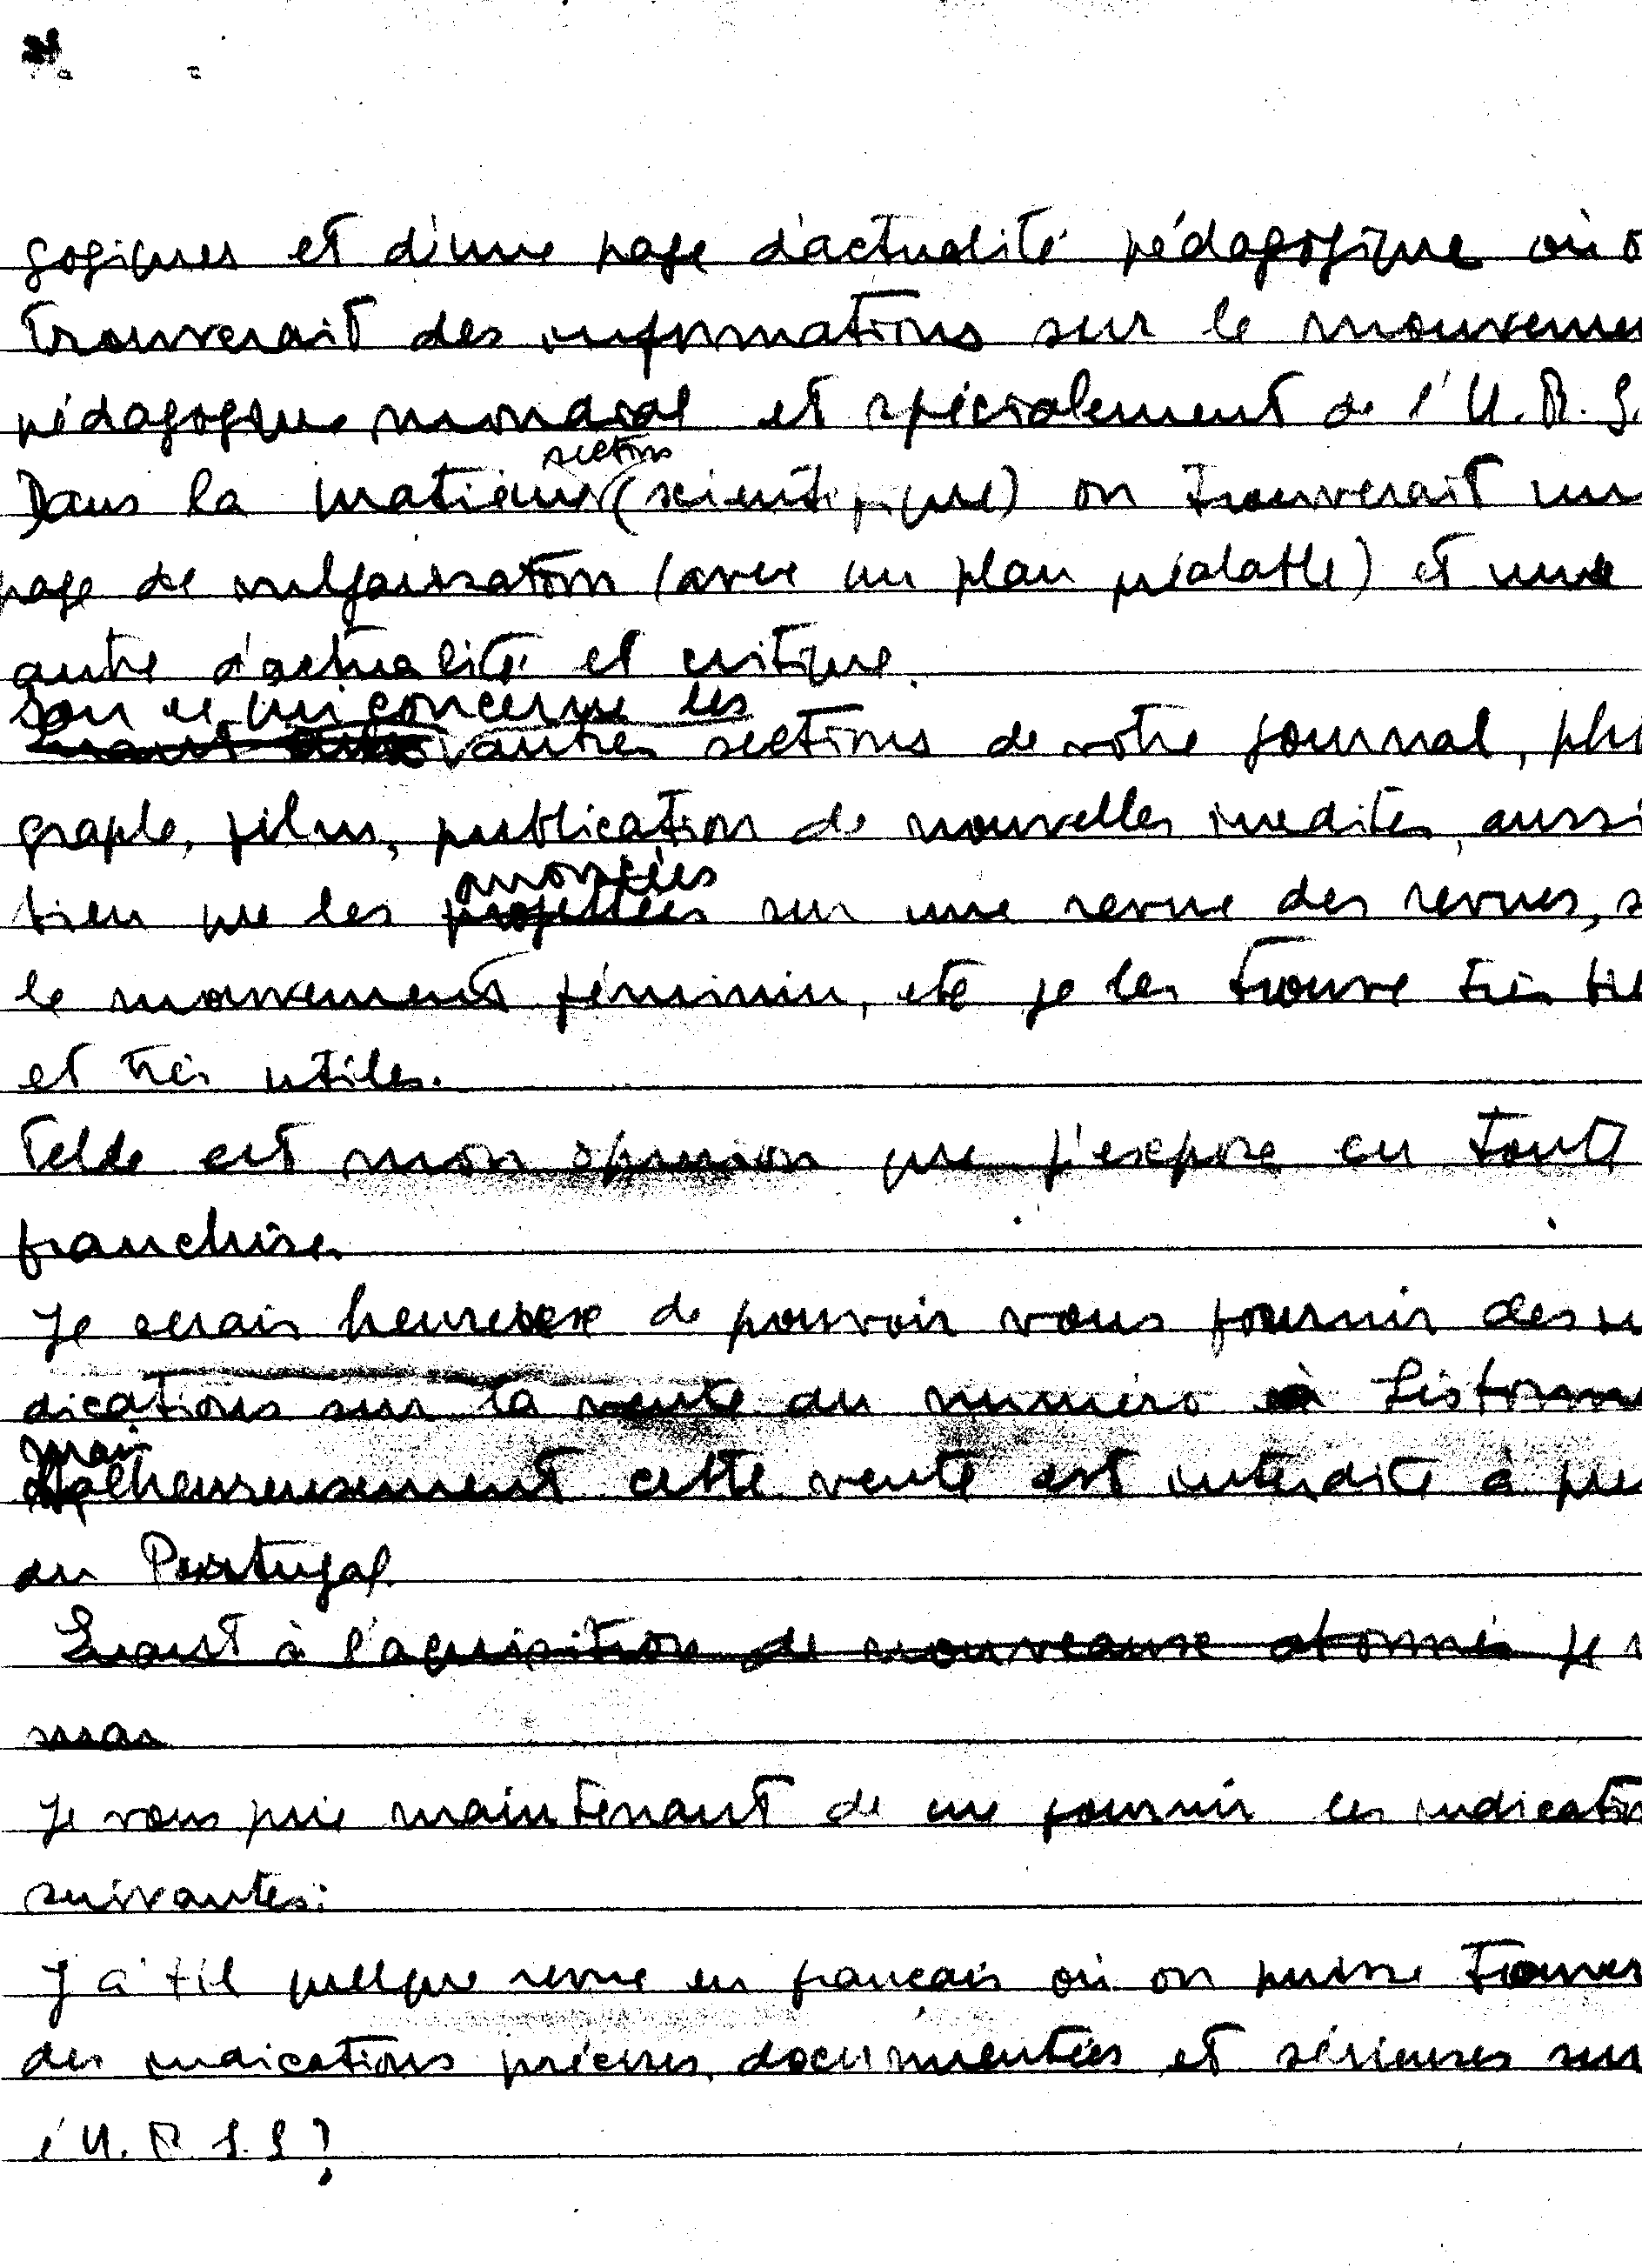 gogiques et d'une page d'actualité pédagogique où o
trouverait des informations sur le mouvemen
pédagogique mondial et spécialement de l'U.R.S.
section
Dans la matière (scientifique) on trouverait un
page de vulgarisation (avec un plan préalable) et une
autre d'actualité et critique.
ce qui concerne les
autres sections de votre journal, pho
graphe, films, publication de nouvelles inedites, aussi
annoncées
bien que les projettées sur une revue des revues, s
le mouvement féminin, etc je les trouve très bie
et très utiles.
Telle est mon opinion que j'expose en toute
franchise.
Je serais heureuse de pouvoir vous fournir des in
dications sur la vente au numéro à Lisbonne
mais
Malheureusement cette vente est interdite à pre
au Portugal.
Quant à l'aquisition de nouveaux abonnés je v
mais
Je vous prie maintenant de me fournir les indication
suivantes:
Y a t il quelque revue en français où on puisse trouver
des indications précises, documentées et sérieuses sur
l'U.R.S.S?